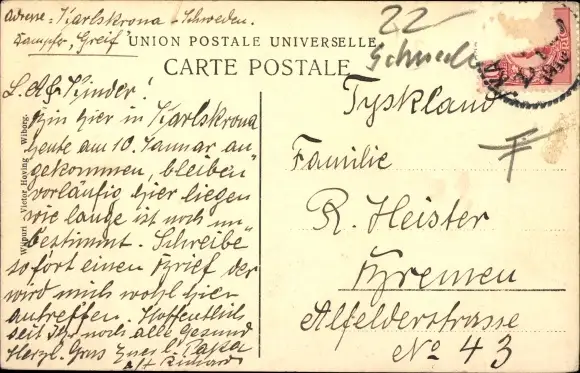 Adresse: Karlskrona - Schweden.
Dampfr. „Greif"
UNION POSTALE UNIVERSELLE
CARTE POSTALE
22
Schwed
L. Kinder!
Bin hier in Karlskrona
heute am 10. Januar an
gekommen, bleiben
vorläufig hier liegen
wie lange ist noch un
bestimmt. Schreibe
sofort einen Brief der
wird mich wohl hier
antreffen. Hoffentlich
seit Ihr noch alle Gesund
Herzl. Grus Euer l. Papa
Richard
Wiipuri - Victor Hoving - Wiborg.
Tyskland
Familie
R. Heister
Bremen
Alfelderstrasse
No 43